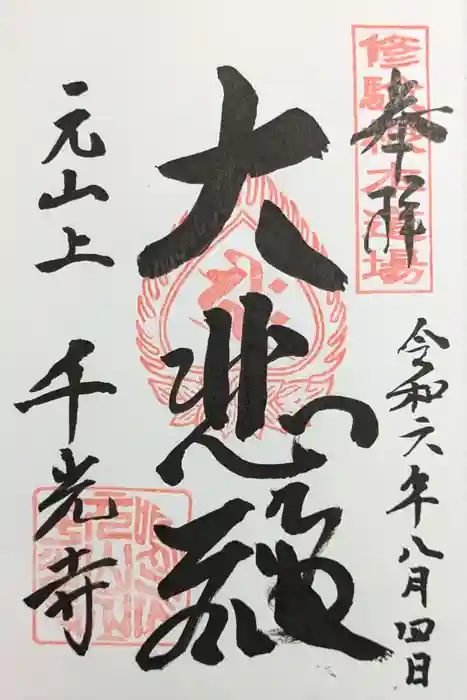 奉拝
修験根本道場
令和六年八月四日
大悲殿
元山上
千光寺